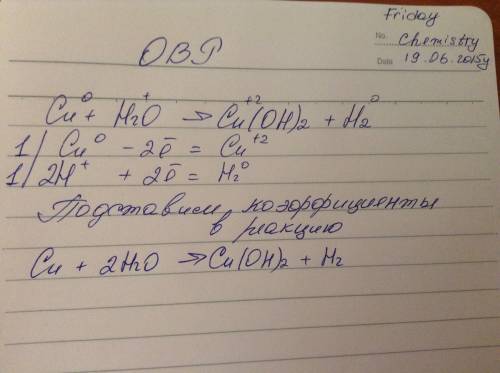 Friday
No. Chemistry
Date 19.06.2015y
ОВР
Cu⁰ + H₂⁺O → Cu⁺²(OH)₂ + H₂⁰
1 | Cu⁰ - 2ē = Cu⁺²
1 | 2H⁺ + 2ē = H₂⁰
Подставим коэффициенты
в реакцию
Cu + 2H₂O → Cu(OH)₂ + H₂